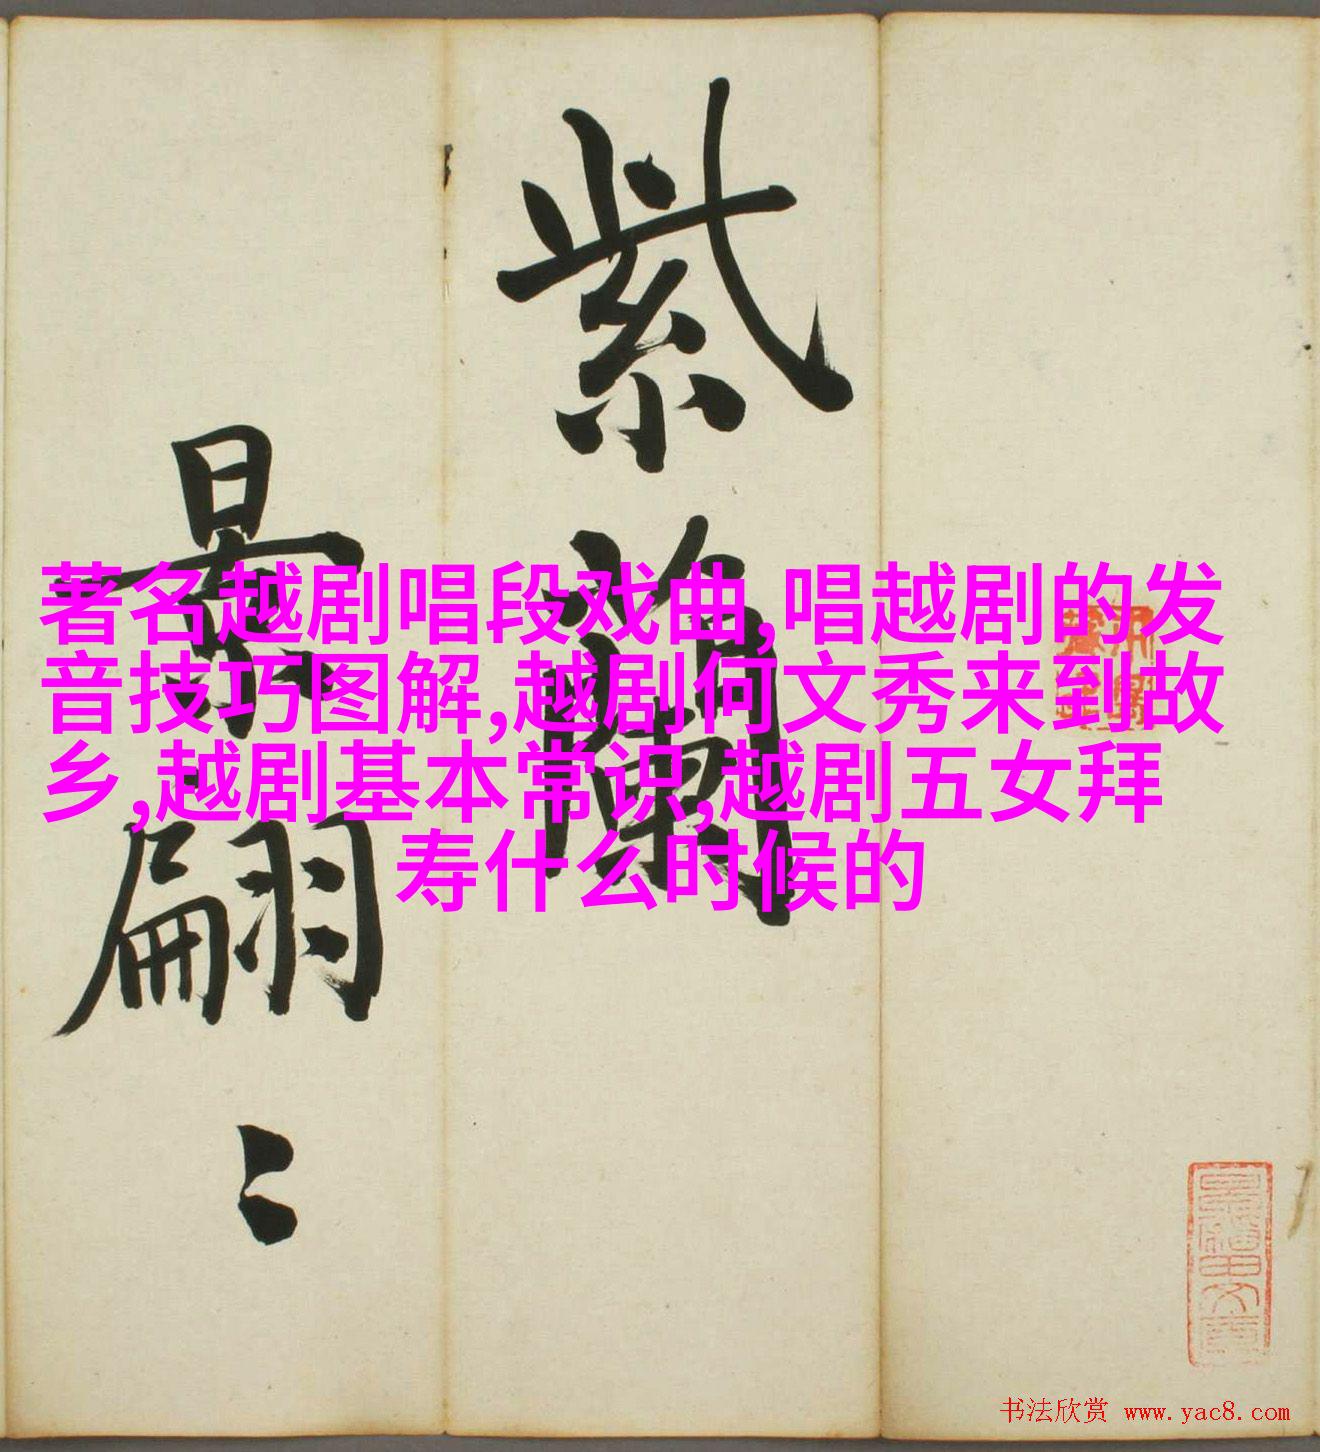 紫蘭
景翩〻
著名越剧唱段戏曲,唱越剧的发
音技巧图解,越剧何文秀来到故
乡,越剧基本常识,越剧五女拜
寿什么时候的
书法欣赏 www.yac8.com